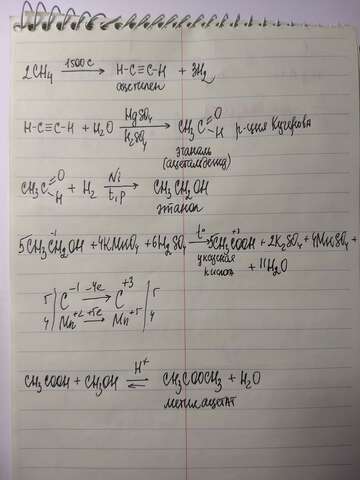 2CH₄ 1500 C → H-C≡C-H + 3H₂
ацетилен
H-C≡C-H + H₂O HgSO₄ → H₂SO₄ CH₃C=O H р-ция Кучерова
этаналь
(ацетальдегид)
CH₃C=O H + H₂ Ni → t, p CH₃CH₂OH
этанол
5CH₃C⁻¹H₂OH + 4KMnO₄ + 6H₂SO₄ t° → 5CH₃C⁺³OOH + 2K₂SO₄ + 4MnSO₄ +
уксусная
кислота + 11H₂O
5 | C⁻¹ -4e → C⁺³ | 5
4 | Mn⁺² +5e → Mn⁺⁵ | 4
CH₃COOH + CH₃OH H⁺ ⇌ CH₃COOCH₃ + H₂O
метилацетат